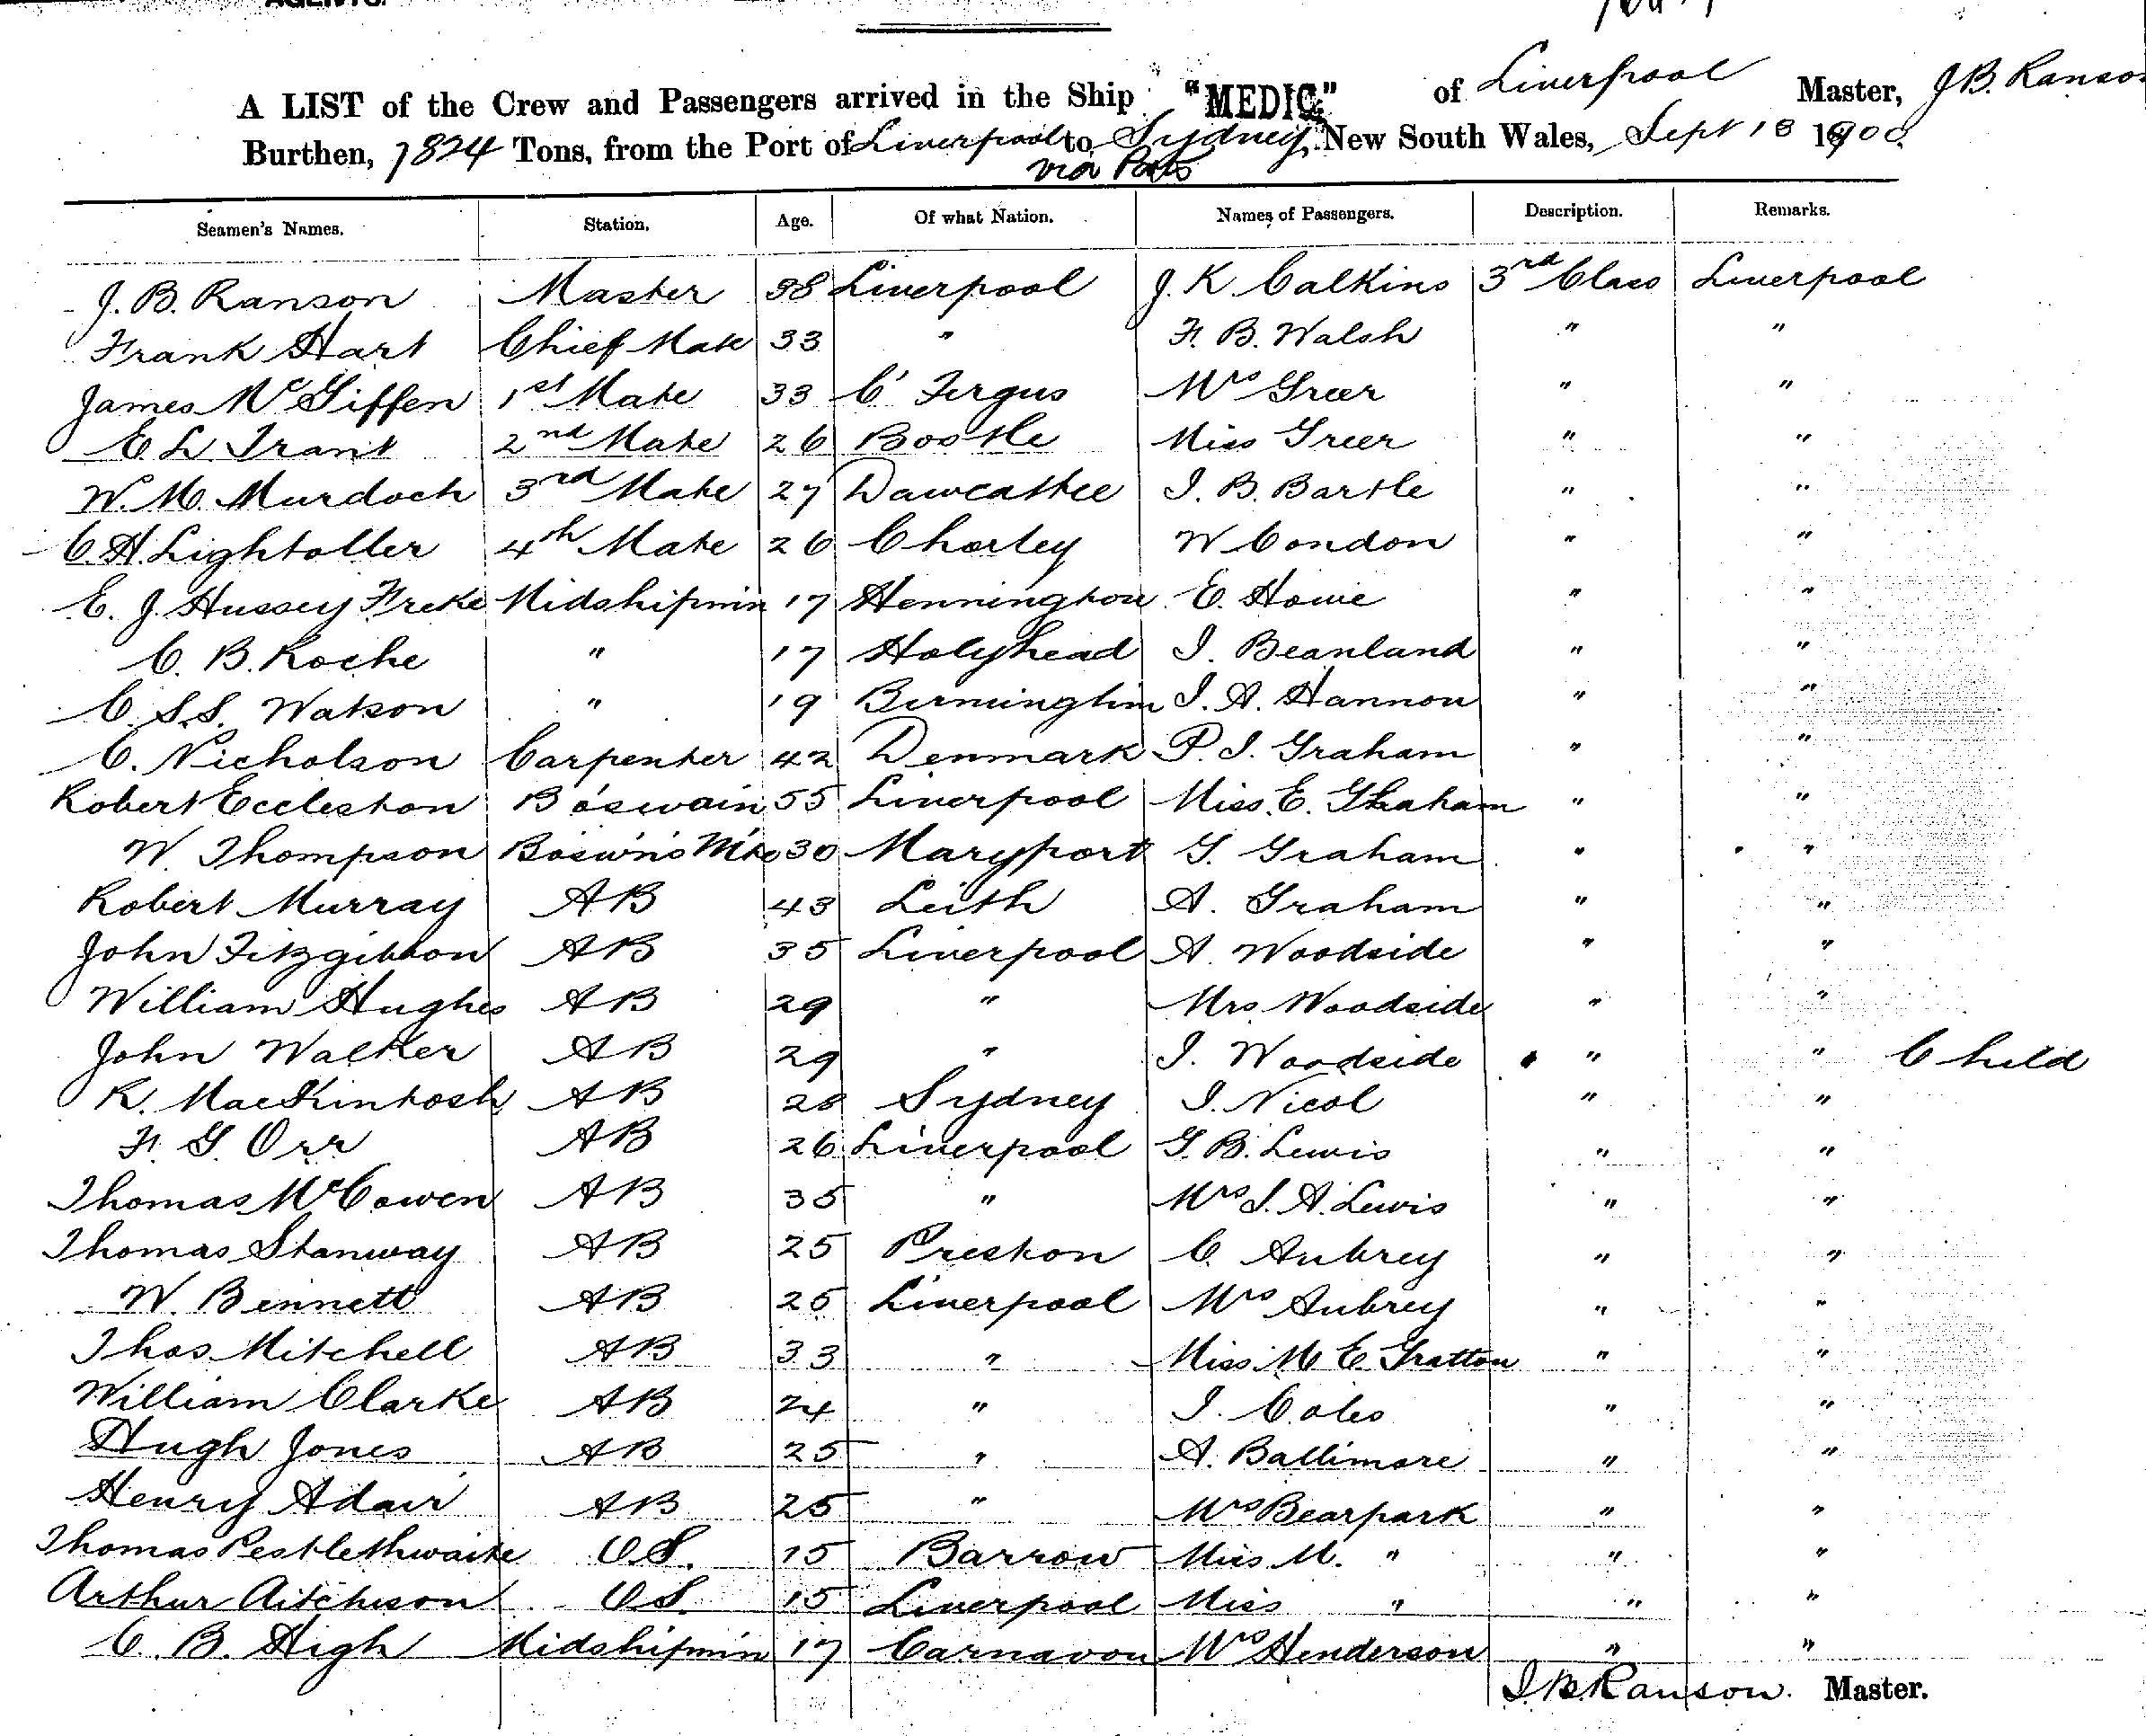 A LIST of the Crew and Passengers arrived in the Ship "MEDIC" of Liverpool Master, J.B. Ranson
Burthen, 7824 Tons, from the Port of Liverpool to Sydney, New South Wales, Sept 18 1900.
via Ports
Seamen's Names. Station. Age. Of what Nation. Names of Passengers. Description. Remarks.
J. B. Ranson Master 38 Liverpool J. K. Calkins 3rd Class Liverpool
Frank Hart Chief Mate 33 " F. B. Walsh " "
James McGiffen 1st Mate 33 C' Fergus Mrs Greer " "
E L Trant 2nd Mate 26 Bootle Miss Greer " "
W. M. Murdoch 3rd Mate 27 J. B. Bartle " "
C. H. Lightoller 4th Mate 26 Chorley W Condon " "
E. J. Hussey Freke Midshipmin 17 Hennington E. Howie " "
C. B. Roche " 17 Holyhead J. Beanland " "
C. S.S. Watson " 19 Birminghm J. A. Hannon " "
C. Nicholson Carpenter 42 Denmark P. J. Graham " "
Robert Eccleston Bo'swain 55 Liverpool Miss. E. Graham " "
W. Thompson Bosw'n's Mte 30 Maryport G. Graham " "
Robert Murray AB 43 Leith A. Graham " "
John Fitzgibbon AB 35 Liverpool A. Woodside " "
William Hughes AB 29 " Mrs Woodside " "
John Walker AB 29 " J. Woodside " " Child
R. MacKintosh AB 28 Sydney J. Nicol " "
F. G. Orr AB 26 Liverpool G. B. Lewis " "
Thomas McCowen AB 35 " Mrs J. A. Lewis " "
Thomas Stanway AB 25 Preston C. Aubrey " "
W. Bennett AB 25 Liverpool Mrs Aubrey " "
Thos Mitchell AB 33 " Miss M E Gratton " "
William Clarke AB 24 " J. Coles " "
Hugh Jones AB 25 " A. Ballimore " "
Henry Adair AB 25 " Mrs Bearpark " "
Thomas Pestlethwaite O.S. 15 Barrow Miss M. " " "
Arthur Aitchison O.S. 15 Liverpool Miss " " "
C. B. High Midshipmin 17 Carnavon Mrs Henderson " "
J B Ranson. Master.